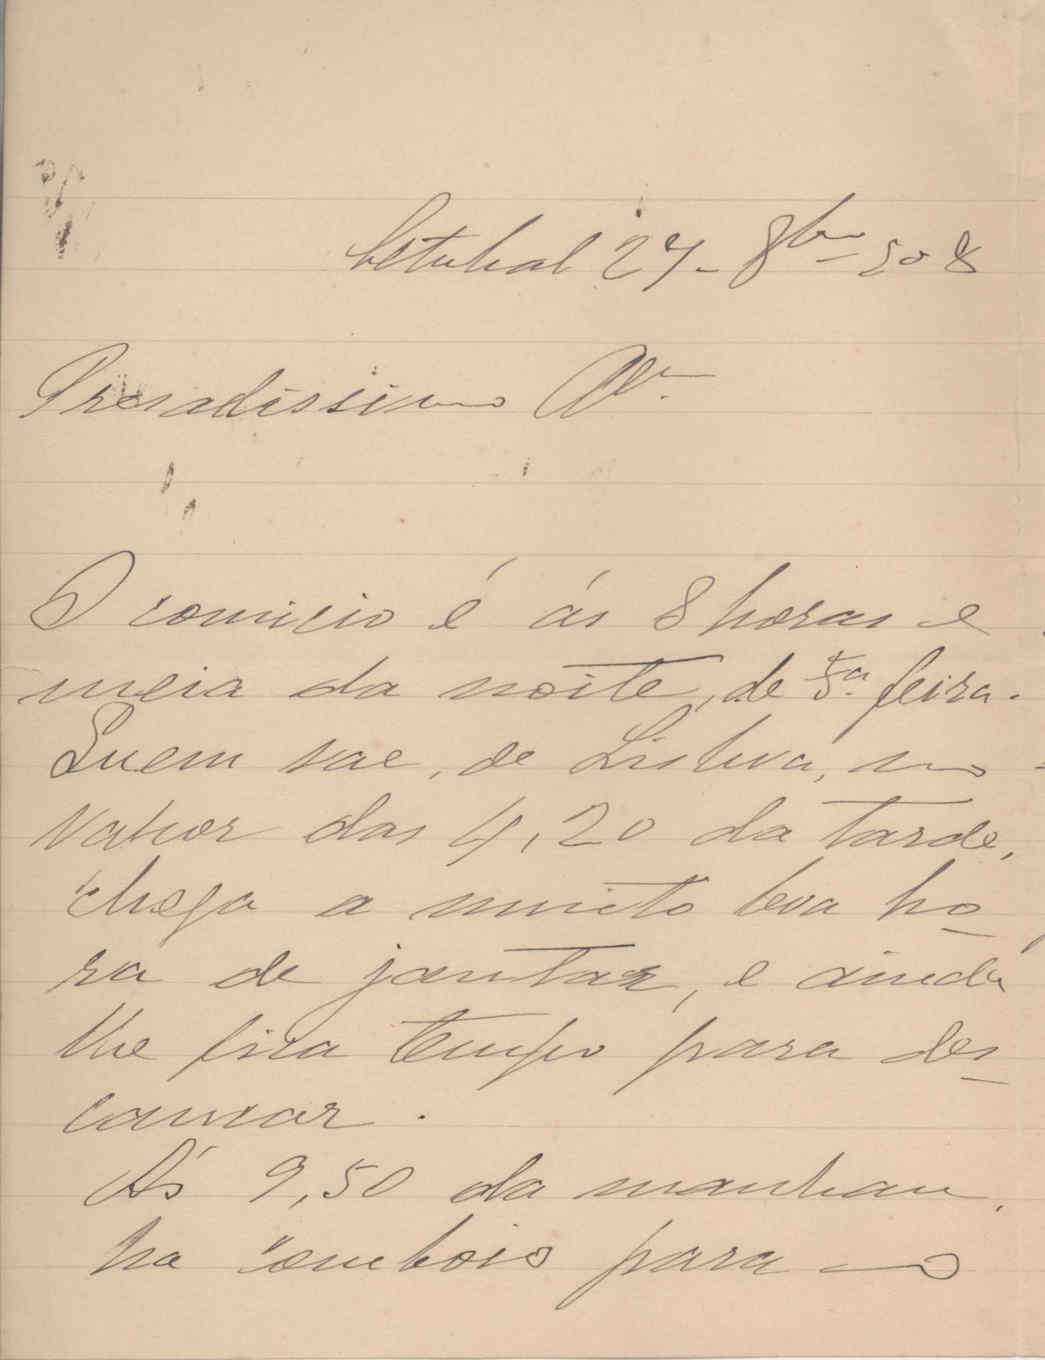 Setubal 27- 8bro 908
Presadissimo Am.
O comicio é ás 8 horas e
meia da noite, de 5ª feira.
Quem sae, de Lisboa, no
vapor das 4,20 da tarde,
chega a muito boa ho-
ra de jantar, e ainda
lhe fica tempo para des-
cansar.
Ás 9,50 da manhan,
ha comboio para o